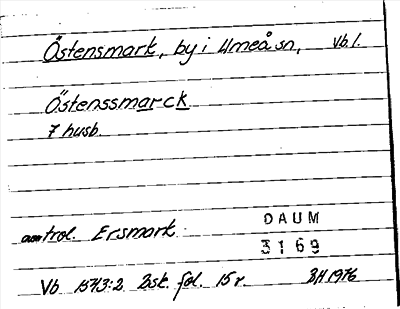 Östensmark, by i Umeå sn, Vb.l.
Östenssmarck
7 husb.
DAUM
trol. Ersmark
3169
Vb 1543:2 Bsk. fol. 15 r. BH 1976